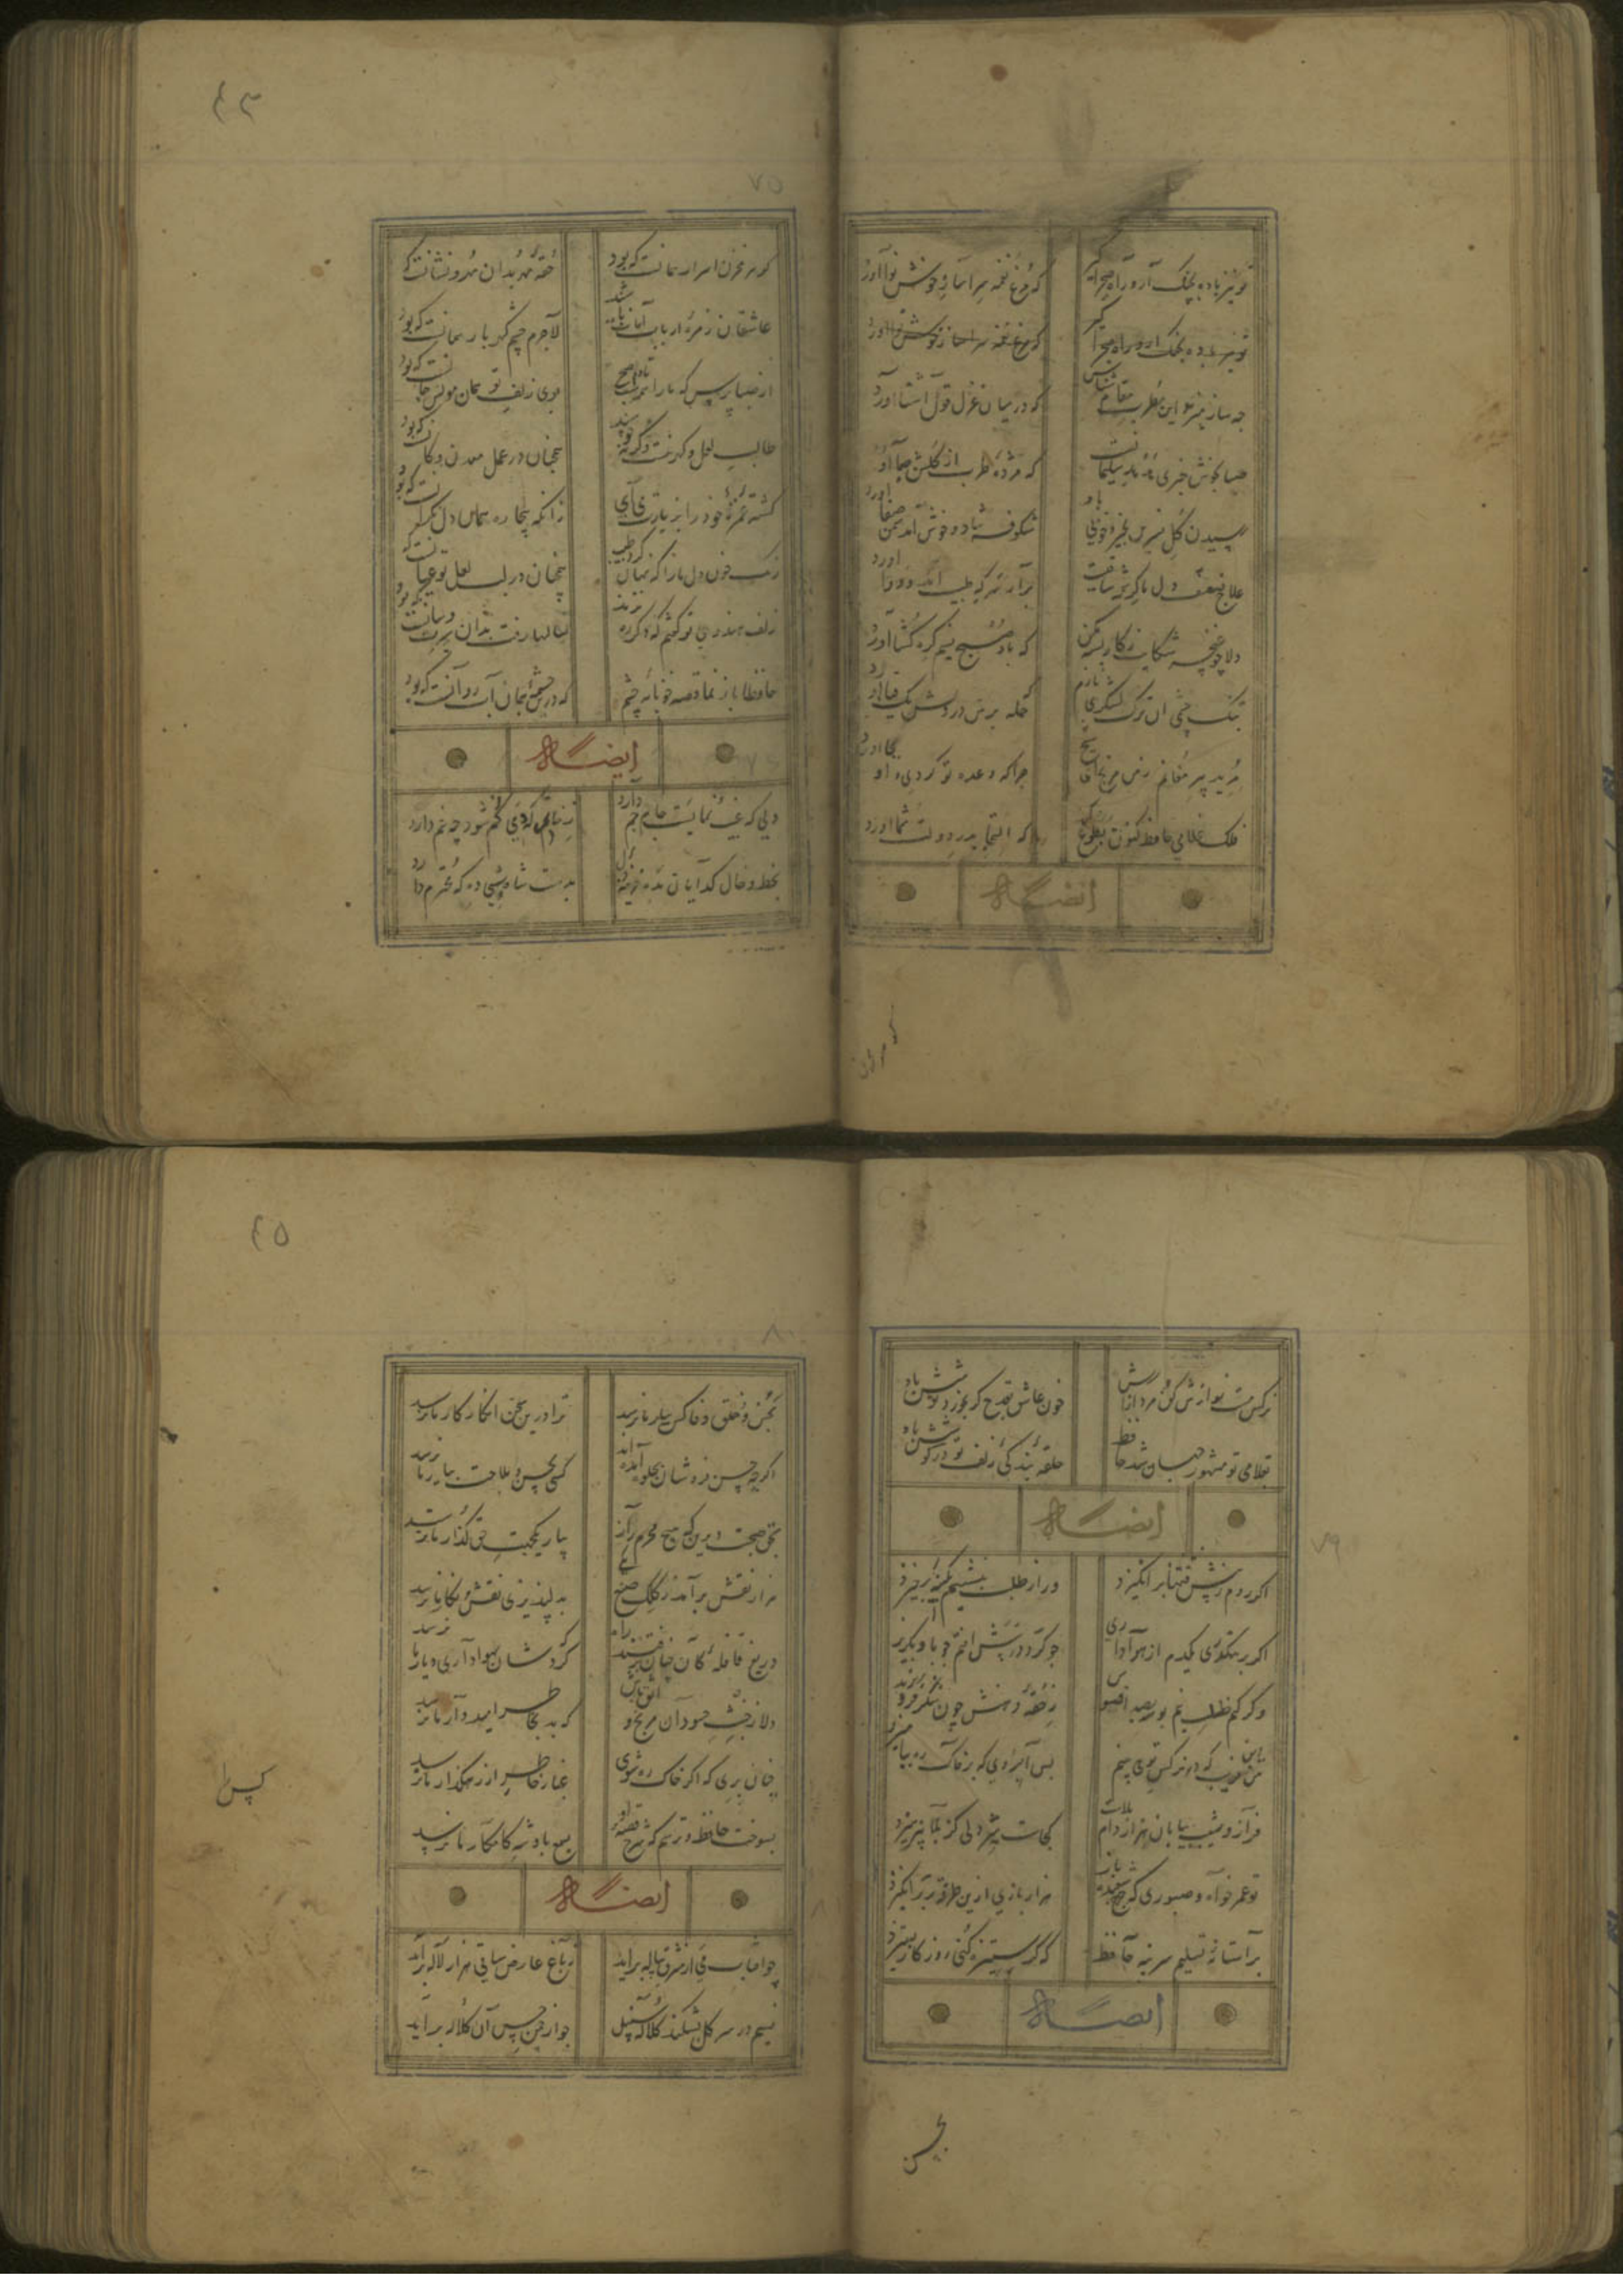 تو نیز باده بچنک آر و راه صحرا گیر
که مرغ نغمه سرا ساز خوش نوا آورد
تو نیز باده بچنک آر و راه صحرا گیر
که مرغ نغمه سرا ساز خوش نوا آورد
چه ساز بزند این مطرب مقام شناس
که در میان غزل قول آشنا آورد
صبا بخوش خبری هدهد سلیمانست
که مژدهٔ طرب از گلشن صبا آورد
رسیدن گل نسرین بخیر و خوبی باد
شکوفه شاد و خوش آمد سمن صفا آورد
علاج ضعف دل ما کرشمه ساقیست
بر آر سر که طبیب آمد و دوا آورد
دلا چو غنچه شکایت ز کار بسته مکن
که باد صبح نسیم گره کشا آورد
به تنک چشمی آن ترک لشکری نازم
که حمله بر من درویش یک قبا آورد
مرید پیر مغانم ز من مرنج ای شیخ
چرا که وعده تو کردی و او بجا آورد
فلک غلامی حافظ کنون بطوع کند
که التجا بدر دولت شما آورد
ایضاً له
۶۳
۷۵
کوهر مخزن اسرار همانست که بود
حقهٔ مهر بدان مهر و نشانست که بود
عاشقان زمرهٔ ارباب امانت باشند
لاجرم چشم گهر بار همانست که بود
از صبا پرس که ما را همه شب تا دم صبح
بوی زلف تو همان مونس جانست که بود
طالب لعل و گهر نیست وگرنه خورشید
همچنان در عمل معدن و کانست که بود
کشتهٔ غمزهٔ خود را بزیارت می آی
زانکه بیچاره همان دل نگرانست که بود
رنک خون دل ما را که نهان کرد طبیب
همچنان در لب لعل تو عیانست که بود
زلف هندوی تو گفتم که دگر ره نزند
سالها رفت بدان سیرت و سانست که بود
حافظا باز نما قصه خونابه چشم
که درین چشمه همان آب روانست که بود
ایضاً له
دلی که غیب نمایست جام جم دارد
ز خاتمی که دمی گم شود چه غم دارد
بخط و خال کدایان مده خزینهٔ دل
بدست شاه وشی ده که محترم دارد
نرکس مست نوازش کن مردم دارش
خون عاشق بقدح کر بخورد نوشش باد
بغلامی تو مشهور جهان شد حافظ
حلقهٔ بندگی زلف تو در گوشش باد
ایضاً له
۷۹
اکر روم ز پیش فتنها بر انگیزد
ور از طلب بنشینم بکینه برخیزد
اکر برهگذری یکدم از هواداری
چو گرد در پیش افتم چو باد بگریزد
وگر کنم طلب نیم بوسه صد افسوس
ز حقهٔ دهنش چون شکر فرو ریزد
من آن فریب که در نرکس تو می بینم
بس آبروی که بر خاک ره بیامیزد
فراز و شیب بیابان هزار دام بلاست
کجاست شیر دلی کز بلا نپرهیزد
تو عمر خواه و صبوری که چرخ شعبده باز
هزار بازی ازین طرفه تر بر انگیزد
بر آستانهٔ تسلیم سر بنه حافظ
که گر ستیزه کنی روزگار بستیزد
ایضاً له
بحسن
۶۵
۸۰
بحسن و خلق و وفا کس بیار ما نرسد
ترا درین سخن انکار کار ما نرسد
اکر چه حسن فروشان بجلوه آمده اند
کسی بحسن و ملاحت بیار ما نرسد
بحق صحبت دیرین که هیچ محرم راز
بیار یکجهت حق گذار ما نرسد
هزار نقش برآمد ز کلک صنع یکی
به دلپذیری نقش نکار ما نرسد
دریغ قافلهٔ کان چنان برفتند راه
که گردشان بهوای دیار ما نرسد
دلا ز رنج حسودان مرنج و واثق باش
که بد بخاطر امیدوار ما نرسد
چنان بزی که اکر خاک ره شوی
غبار خاطر از رهگذار ما نرسد
بسوخت حافظ و ترسم که شرح قصهٔ او
بسمع پادشه کامکار ما نرسد
ایضاً له
چو آفتاب می از مشرق پیاله برآید
ز باغ عارض ساقی هزار لاله برآید
نسیم در سر گل بشکند کلالهٔ سنبل
چو از چمن بوی آن کلاله برآید